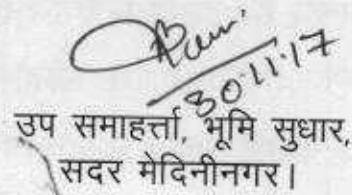 30.11.17
उप समाहर्त्ता, भूमि सुधार,
सदर मेदिनीनगर।